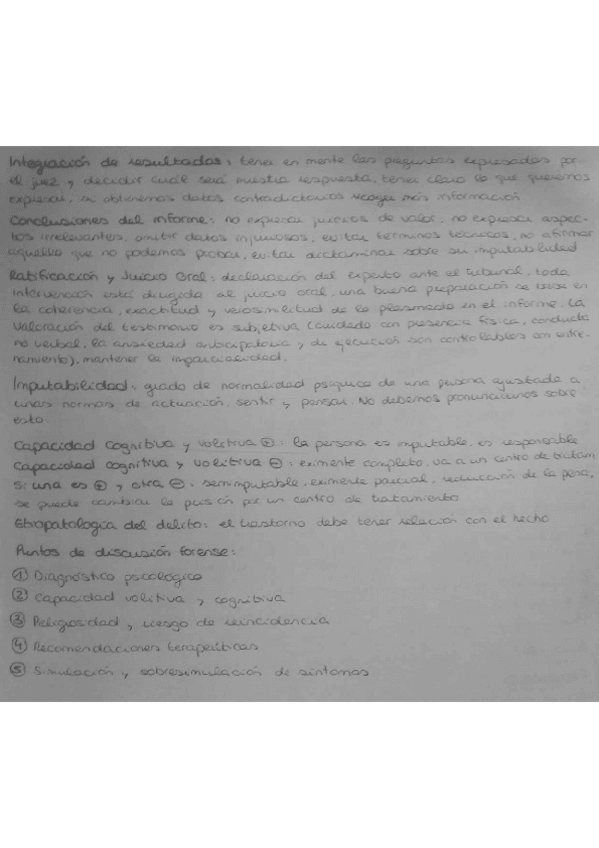 Integración de resultados: tener en mente las preguntas expresadas por
el juez y decidir cuál será nuestra respuesta, tener claro lo que queremos
expresar, si obtenemos datos contradictorios recoger más información
Conclusiones del informe: no expresar juicios de valor, no expresar aspec-
tos irrelevantes, omitir datos injuriosos, evitar términos técnicos, no afirmar
aquello que no podemos probar, evitar dictaminar sobre su imputabilidad
Ratificación y Juicio Oral: declaración del experto ante el tribunal, toda
intervención está dirigida al juicio oral, una buena preparación se basa en
la coherencia, exactitud y verosimilitud de lo plasmado en el informe. La
valoración del testimonio es subjetiva (cuidado con presencia física, conducta
no verbal, la ansiedad anticipatoria y de ejecución son controlables con entre-
namiento), mantener la imparcialidad.
Imputabilidad: grado de normalidad psíquica de una persona ajustada a
unas normas de actuación, sentir y pensar. No debemos pronunciarnos sobre
esto.
Capacidad cognitiva y volitiva ⊕: la persona es imputable, es responsable
Capacidad cognitiva y volitiva ⊖: eximente completo, va a un centro de tratam
Si una es ⊕ y otra ⊖: semiimputable, eximente parcial, reducción de la pena,
se puede cambiar la prisión por un centro de tratamiento
Etiopatología del delito: el trastorno debe tener relación con el hecho
Puntos de discusión forense:
① Diagnóstico psicológico
② Capacidad volitiva y cognitiva
③ Peligrosidad y riesgo de reincidencia
④ Recomendaciones terapéuticas
⑤ Simulación y sobresimulación de síntomas